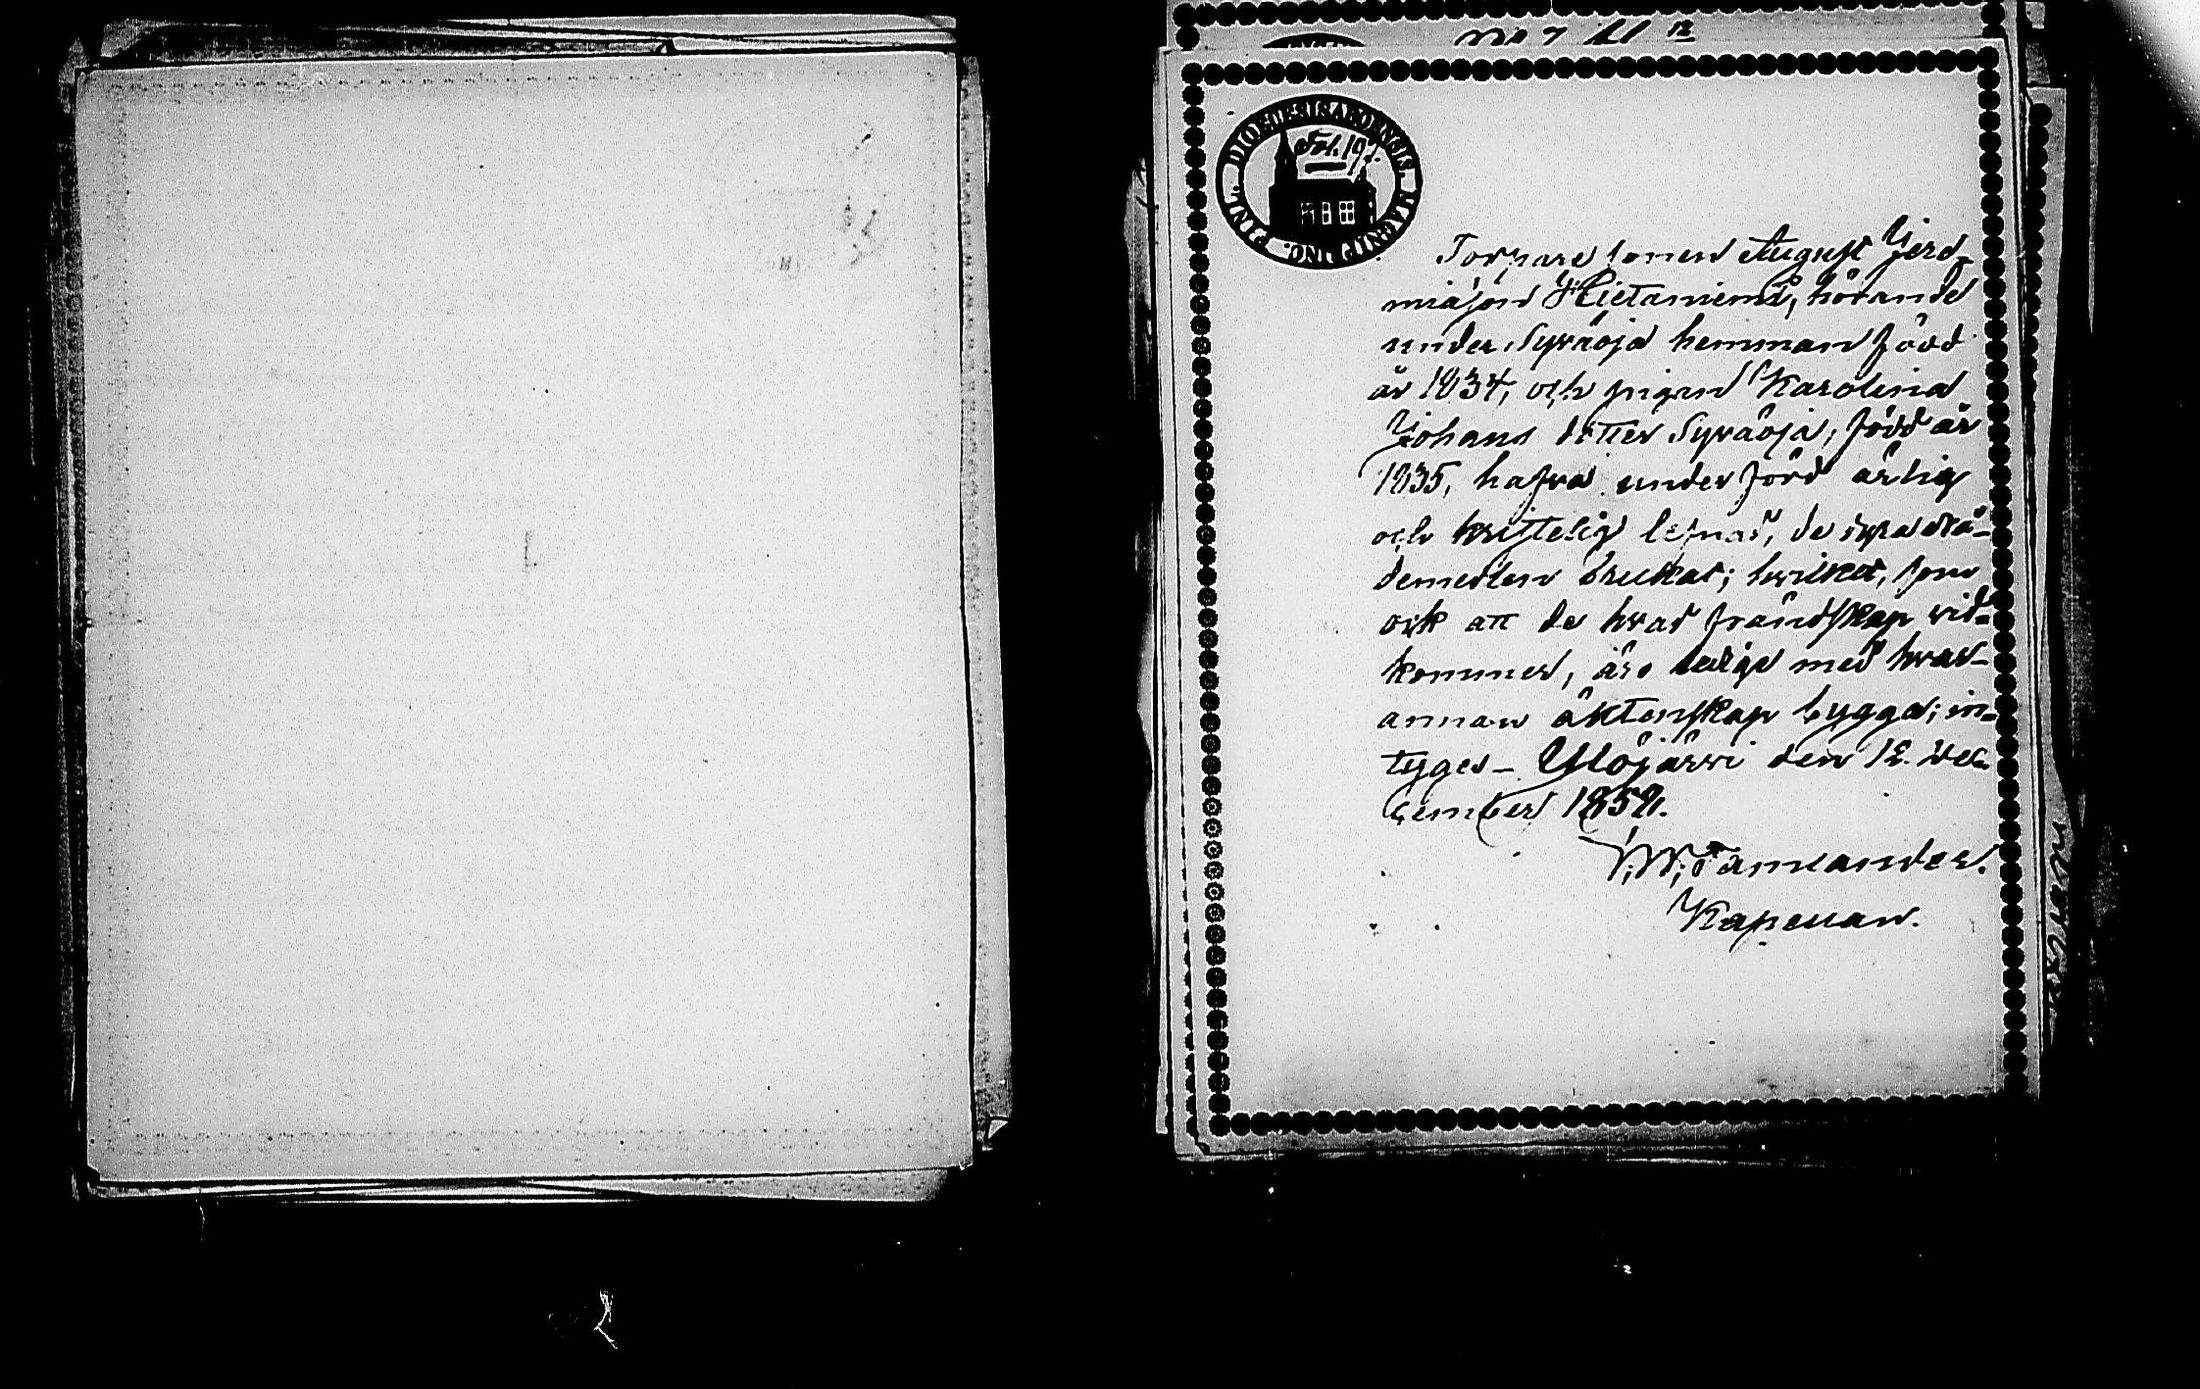 Fol. 197.
Torpare sonen August Jere-
miasson Hietaniemi, hörande
under Syräoja hemman född
år 1834, och pigan Karolina
Johans dotter Syräoja, född år
1835, hafva under förd ärlig
och kristelig lefnad,
demedlen brukat; hvilket, som
ock att de hvad frändskap vid-
kommer, äro ledige med hvar-
annan äktenskap bygga; in-
tyges_ Ylöjärvi den 12. De-
cember 1859.
Kapellan.